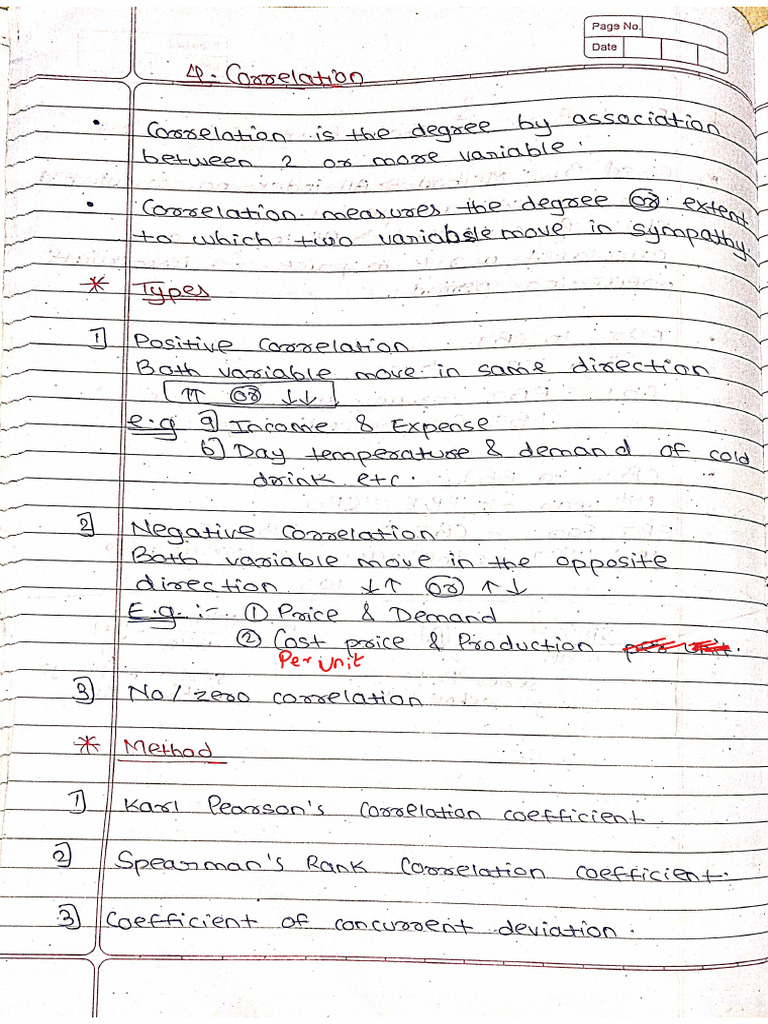 Page No.
Date
4. Correlation
• Correlation is the degree by association
between 2 or more variable.
• Correlation measures the degree or extent
to which two variable move in sympathy.
* Types
1] Positive Correlation
Both variable move in same direction
↑↑ or ↓↓
e.g a] Income & Expense
b] Day temperature & demand of cold
drink etc.
2] Negative Correlation
Both variable move in the opposite
direction ↓↑ or ↑↓
E.g. :- ① Price & Demand
② Cost price & Production
Per unit
3] No / zero correlation
* Method
1] Karl Pearson's correlation coefficient
2] Spearman's Rank Correlation coefficient.
3] Coefficient of concurrent deviation.